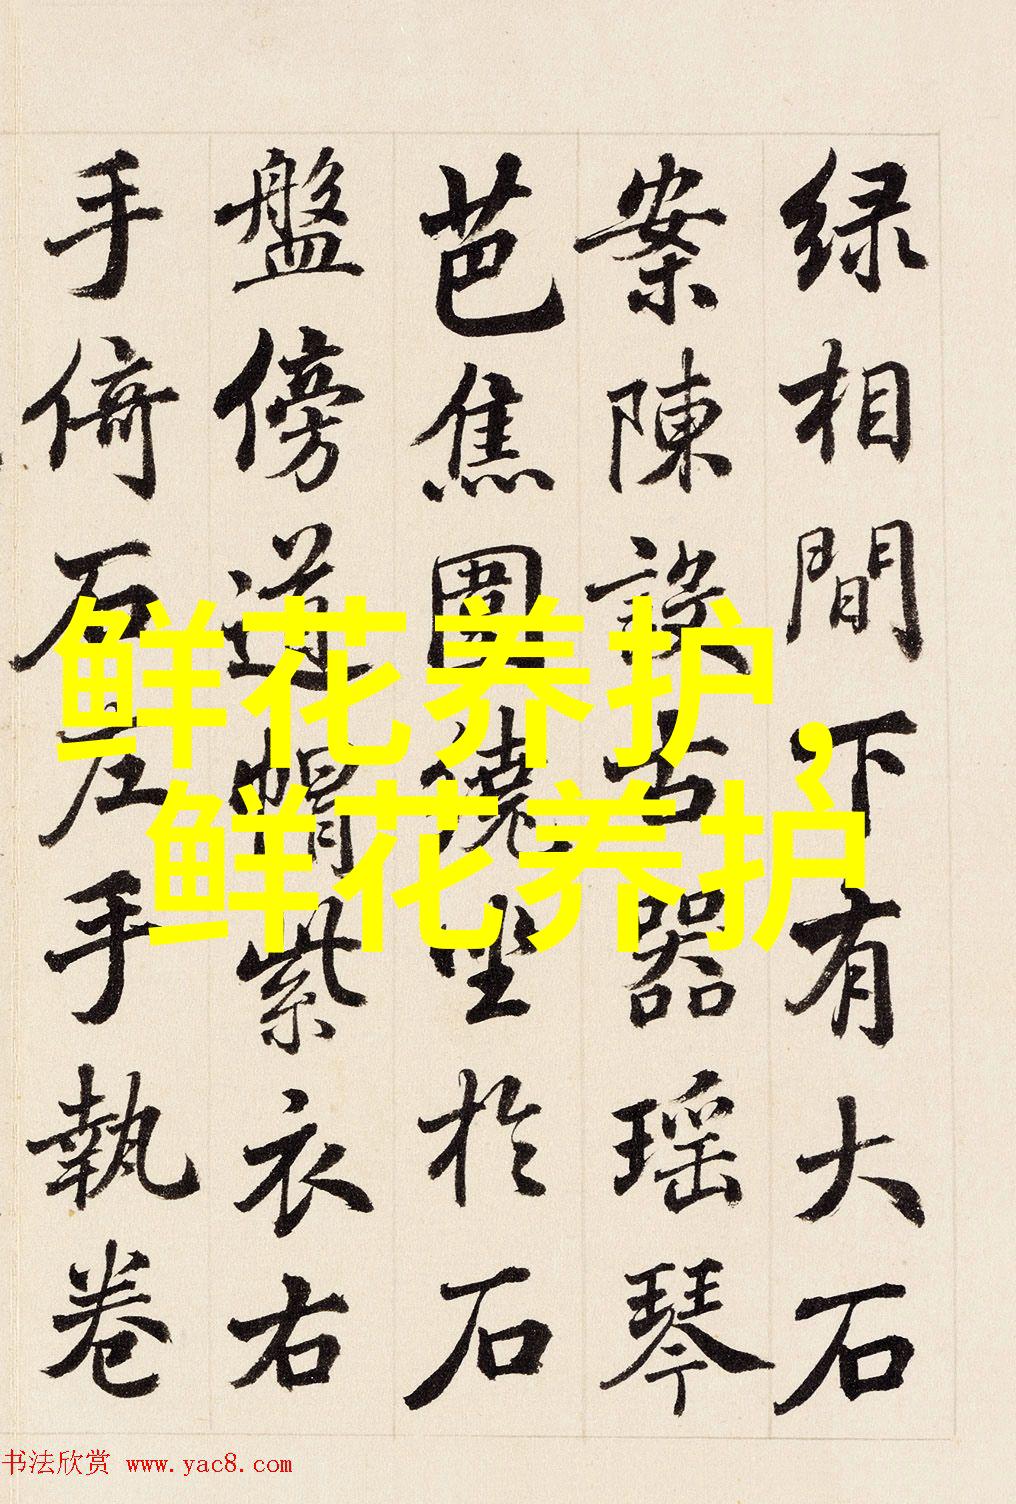 绿相間下有大石
案陳設古器瑶琴
芭焦圍繞坐於石
盤傍道帽紫衣右
手倚石左手執卷
鲜花养护,
鲜花养护
书法欣赏 www.yac8.com